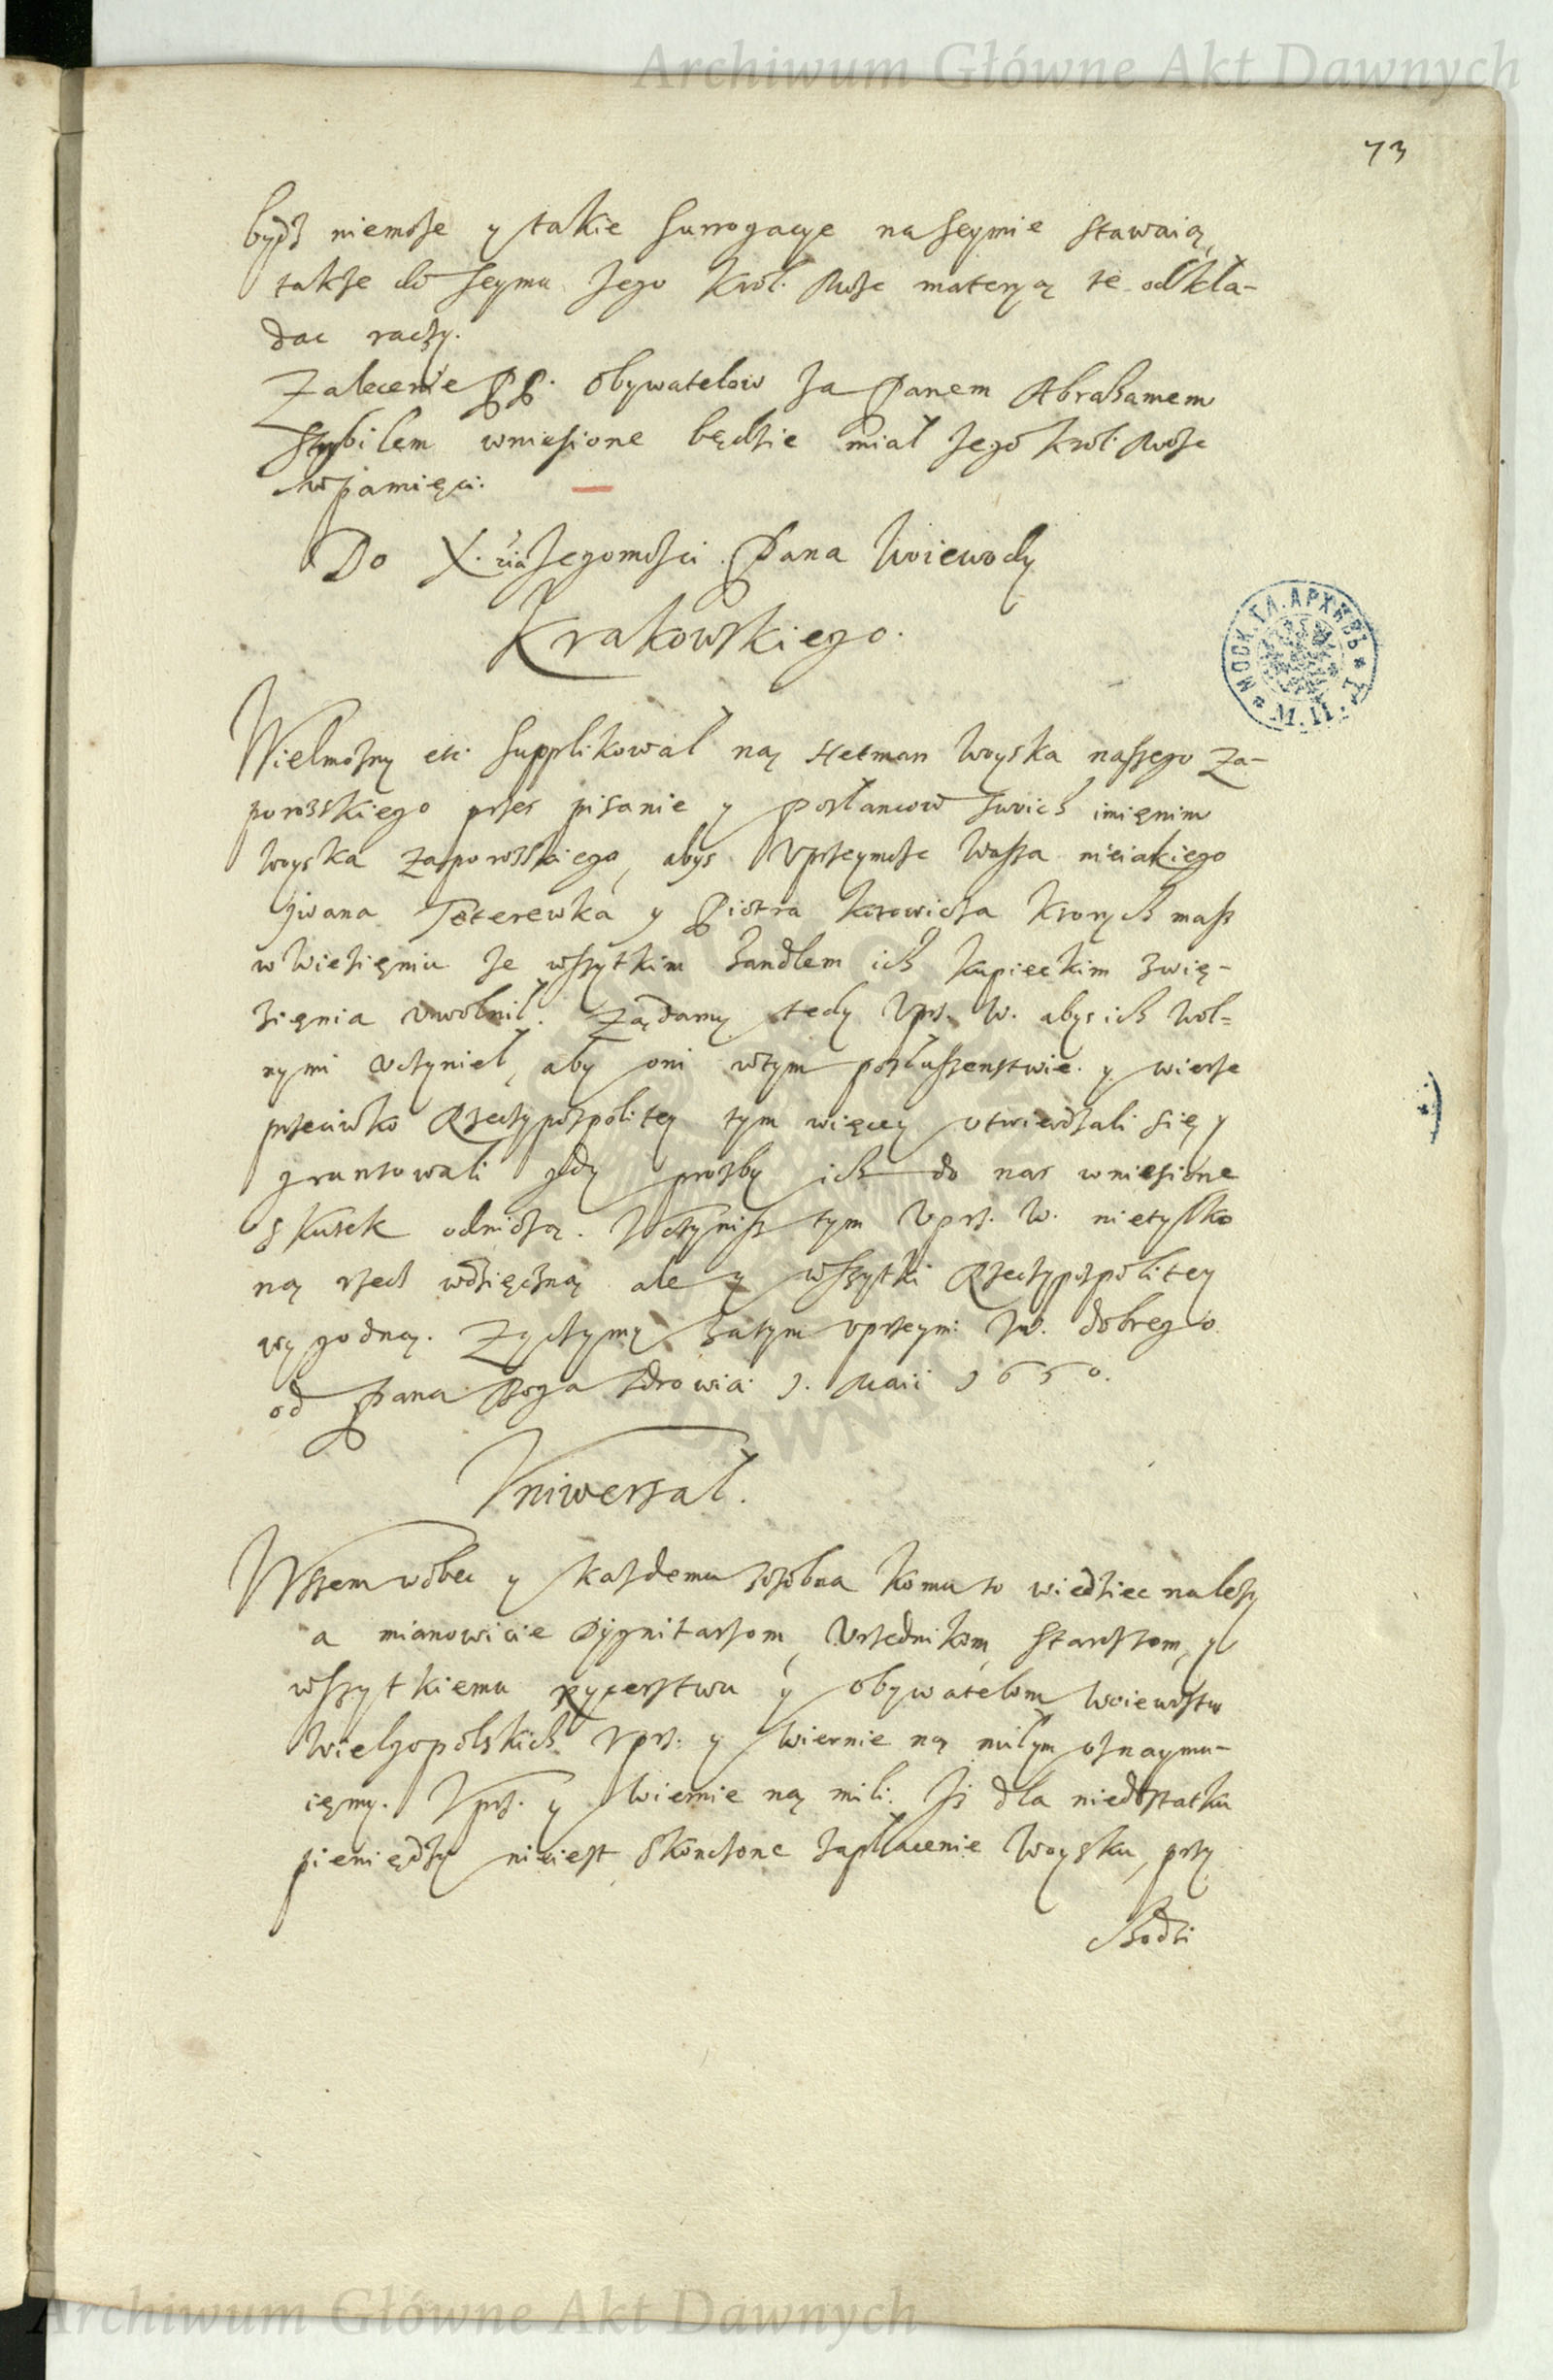 Archiwum Główne Akt Dawnych
73
bydź niemoże y takie surrogacye na Seymie stawaią,
także do Seymu Jego Krol. Mość materyą te odkła-
dac raczy.
Zalecenie PP. Obywatelow za Panem Abrahamem
wniesione będzie miał Jego Krol. Mość
w pamięci.
Do X. cia Jegomości Pana Woiewody
Krakowskiego.
Wielmożny etc. Supplikował ną Hetman Woyska naszego Za-
porozskiego przez pisanie y posłancow swoich imięnim
Woyska Zaporozskiego, abyś Uprzeymość Wasza nieiakiego
Jwana Teterewka y Piotra Ktorych masz
w więzięniu ze wszytkim handlem ich kupieckim z wię-
zięnia uwolnił. Ządamy tedy Uprz. W. abyś ich wol-
nymi uczynieł, aby oni w tym posłuszenstwie y wierze
przeciwko Rzeczypospolitey tym więcey utwierdzali się y
gruntowali gdy prozby ich do nas wniesione
skutek odniosą. Uczynisz tym Uprz. W. nietylko
ną rzecz wdzięczną ale y wszytki Rzeczypospolitey
wygodną. Zyczymy zatym uprzeym: W. dobrego
od Pana Boga zdrowia. 9. Maii 1650.
Uniwersał.
Wszem wobec y każdemu zosobna komu to wiedziec należy
a mianowicie Dygnitarzom, Urzędnikom, Starostom, y
wszytkiemu rycerstwu y obywatelom Woiewodztw
Wielgopolskich Uprz. y Wiernie ną miłym oznaymu-
ięmy. Uprz. y Wiernie ną mili. Jż dla niedostatku
pieniędzy nieiest skonczone zapłacenie Woysku, przy
chodzi
МОСК. ГЛ. АРХИВЪ
Archiwum Główne Akt Dawnych